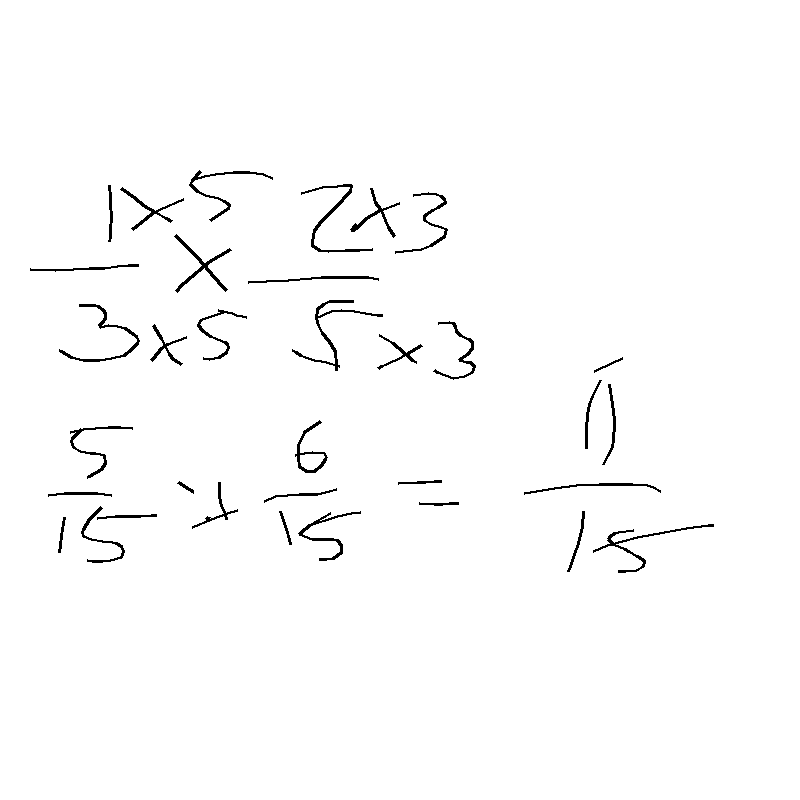 1×5/3×5 × 2×3/5×3
5/15 + 6/15 = 11/15